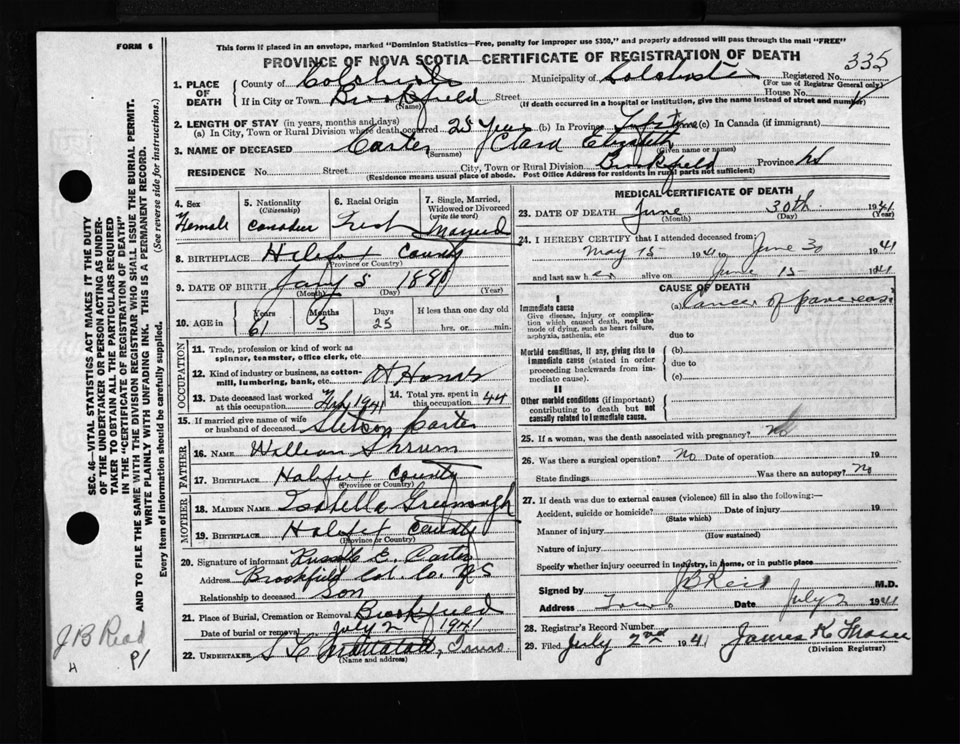 FORM 6
This form if placed in an envelope, marked "Dominion Statistics—Free, penalty for improper use $300," and properly addressed will pass through the mail "FREE"
PROVINCE OF NOVA SCOTIA—CERTIFICATE OF REGISTRATION OF DEATH
335
1. PLACE OF DEATH
County of Colchester Municipality of Colchester Registered No.
(For use of Registrar General only)
If in City or Town Brookfield Street House No.
(Name) (If death occurred in a hospital or institution, give the name instead of street and number)
2. LENGTH OF STAY (in years, months and days)
(a) In City, Town or Rural Division where death occurred 25 years (b) In Province (c) In Canada (if immigrant)
3. NAME OF DECEASED Carter Clara Elizabeth
(Surname) (Given name or names)
RESIDENCE No. Street City, Town or Rural Division Brookfield Province NS
(Residence means usual place of abode. Post Office Address for residents in rural parts not sufficient)
4. Sex
Female
5. Nationality
(Citizenship)
6. Racial Origin
7. Single, Married, Widowed or Divorced
(write the word)
Married
8. BIRTHPLACE Halifax County
(Province or Country)
9. DATE OF BIRTH Jany 5 1880
(Month) (Day) (Year)
10. AGE in Years Months Days If less than one day old
61 5 25 hrs. or min.
OCCUPATION
11. Trade, profession or kind of work as spinner, teamster, office clerk, etc.
12. Kind of industry or business, as cotton-mill, lumbering, bank, etc. At Home
13. Date deceased last worked at this occupation 1941
14. Total yrs. spent in this occupation 44
15. If married give name of wife or husband of deceased Stetson Carter
FATHER
16. NAME William Shrum
17. BIRTHPLACE Halifax County
(Province or Country)
MOTHER
18. MAIDEN NAME Isabella Greenough
19. BIRTHPLACE Halifax County
(Province or Country)
20. Signature of informant Russell E. Carter
Address Brookfield Col. Co. N S
Relationship to deceased Son
21. Place of Burial, Cremation or Removal Brookfield
Date of burial or removal July 2 1941
22. UNDERTAKER Truro
(Name and address)
MEDICAL CERTIFICATE OF DEATH
23. DATE OF DEATH June 30th 1941
(Month) (Day) (Year)
24. I HEREBY CERTIFY that I attended deceased from:
May 15 1941 to June 30 1941
and last saw her alive on June 15 1941
CAUSE OF DEATH
I
Immediate cause (a) Cancer of pancreas
Give disease, injury or complication which caused death, not the mode of dying, such as heart failure, asphyxia, asthenia, etc.
due to
Morbid conditions, if any, giving rise to immediate cause (stated in order proceeding backwards from immediate cause).
(b)
due to
(c)
II
Other morbid conditions (if important) contributing to death but not causally related to immediate cause.
25. If a woman, was the death associated with pregnancy? No
26. Was there a surgical operation? No Date of operation 19
State findings Was there an autopsy? No
27. If death was due to external causes (violence) fill in also the following:—
Accident, suicide or homicide? Date of injury 19
(State which)
Manner of injury
(How sustained)
Nature of injury
Specify whether injury occurred in industry, in home, or in public place
Signed by J B Reid M.D.
Address Truro Date July 2 1941
28. Registrar's Record Number
29. Filed July 2nd 1941 James K
(Division Registrar)
SEC. 46—VITAL STATISTICS ACT MAKES IT THE DUTY
OF THE UNDERTAKER OR PERSON ACTING AS UNDER-
TAKER TO OBTAIN ALL THE PARTICULARS REQUIRED
IN THE "CERTIFICATE OF REGISTRATION OF DEATH"
AND TO FILE THE SAME WITH THE DIVISION REGISTRAR WHO SHALL ISSUE THE BURIAL PERMIT.
WRITE PLAINLY WITH UNFADING INK. THIS IS A PERMANENT RECORD.
Every item of information should be carefully supplied. (See reverse side for instructions.)
J B Read
H P/